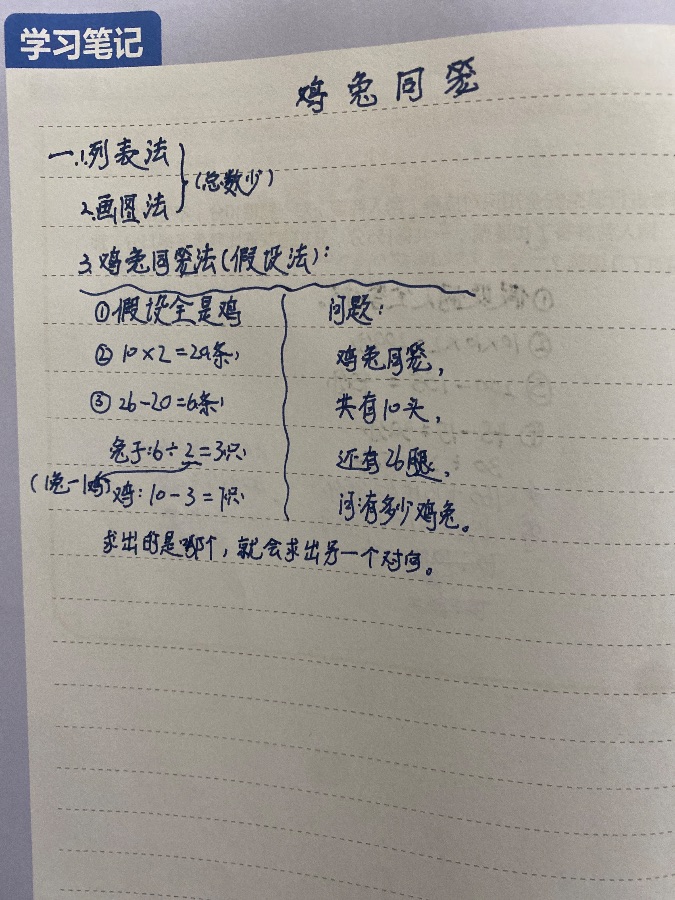 学习笔记
鸡兔同笼
一.1.列表法
2.画图法
(总数少)
3.鸡兔同笼法(假设法):
①假设全是鸡
②10×2=20(条)
③26-20=6(条)
兔子:6÷2=3(只)
(1兔-1鸡)
鸡:10-3=7(只)
问题:
鸡兔同笼,
共有10头,
还有26腿,
问有多少鸡兔。
求出的是哪个,就会求出另一个对向。